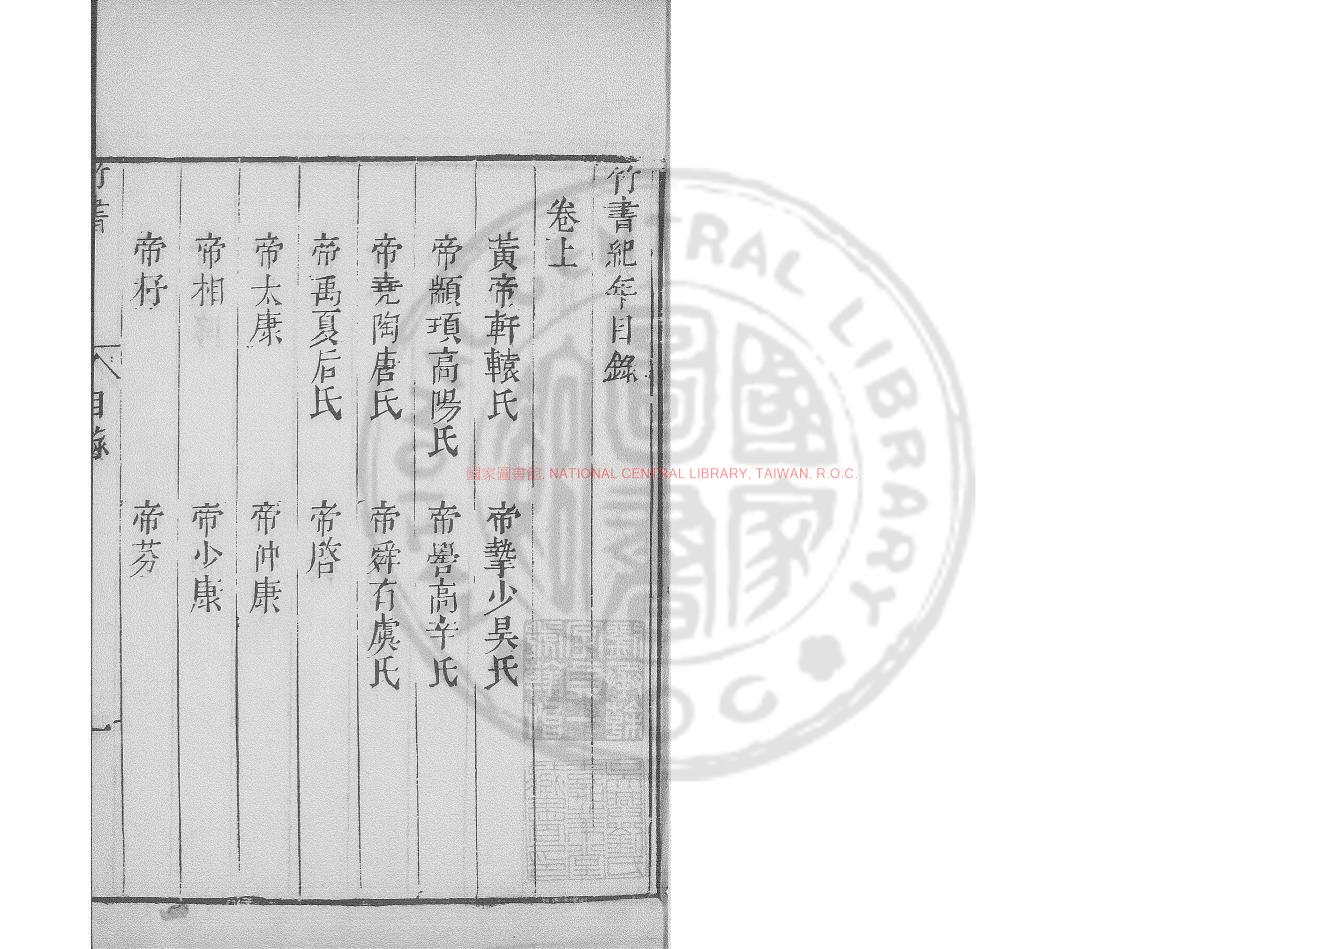 竹書紀年目錄
卷上
黃帝軒轅氏 帝摯少昊氏
帝顓頊高陽氏 帝嚳高辛氏
帝堯陶唐氏 帝舜有虞氏
帝禹夏后氏 帝啓
帝太康 帝仲康
帝相 帝少康
帝杼 帝芬
竹書 目錄 一
國家圖書館, NATIONAL CENTRAL LIBRARY, TAIWAN, R.O.C.